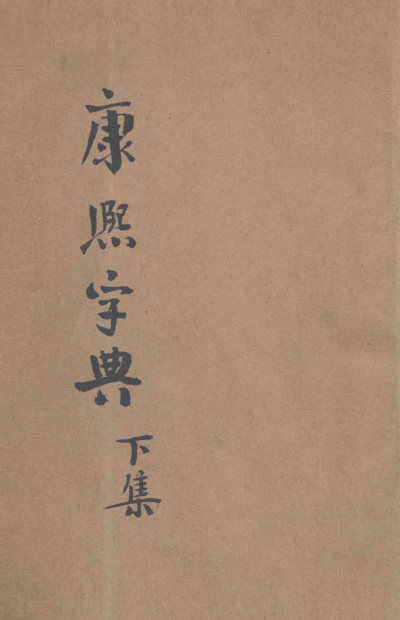 康熙字典
下集